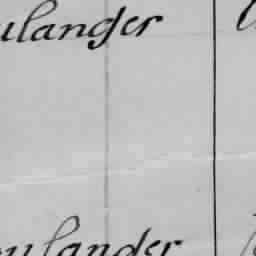 ulanger
oulander